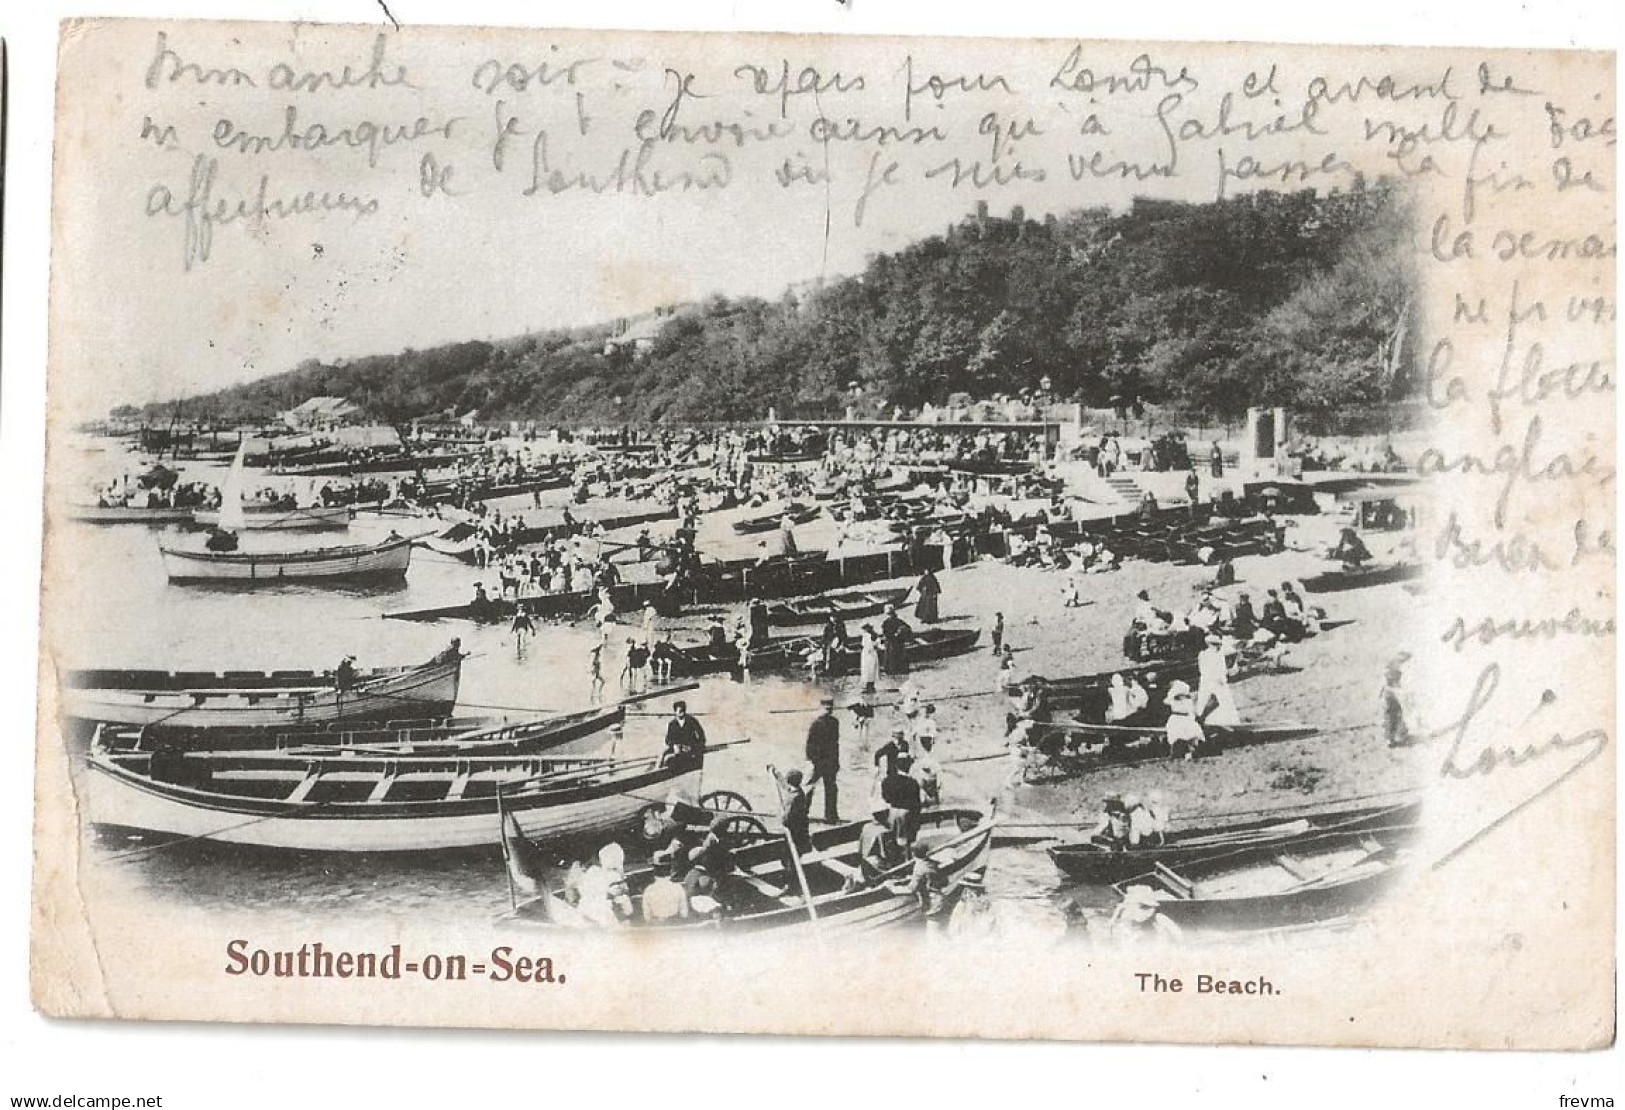 Dimanche soir - je repars pour Londres et avant de
m embarquer je t envoie ainsi qu a Gabriel mille
affectueux de Southend où je suis venu passer la fin de
la semai
ne pr voir
la flotte
anglais
Bien de
souveni
Louis
Southend-on-Sea.
The Beach.
delcampe.net
frevma